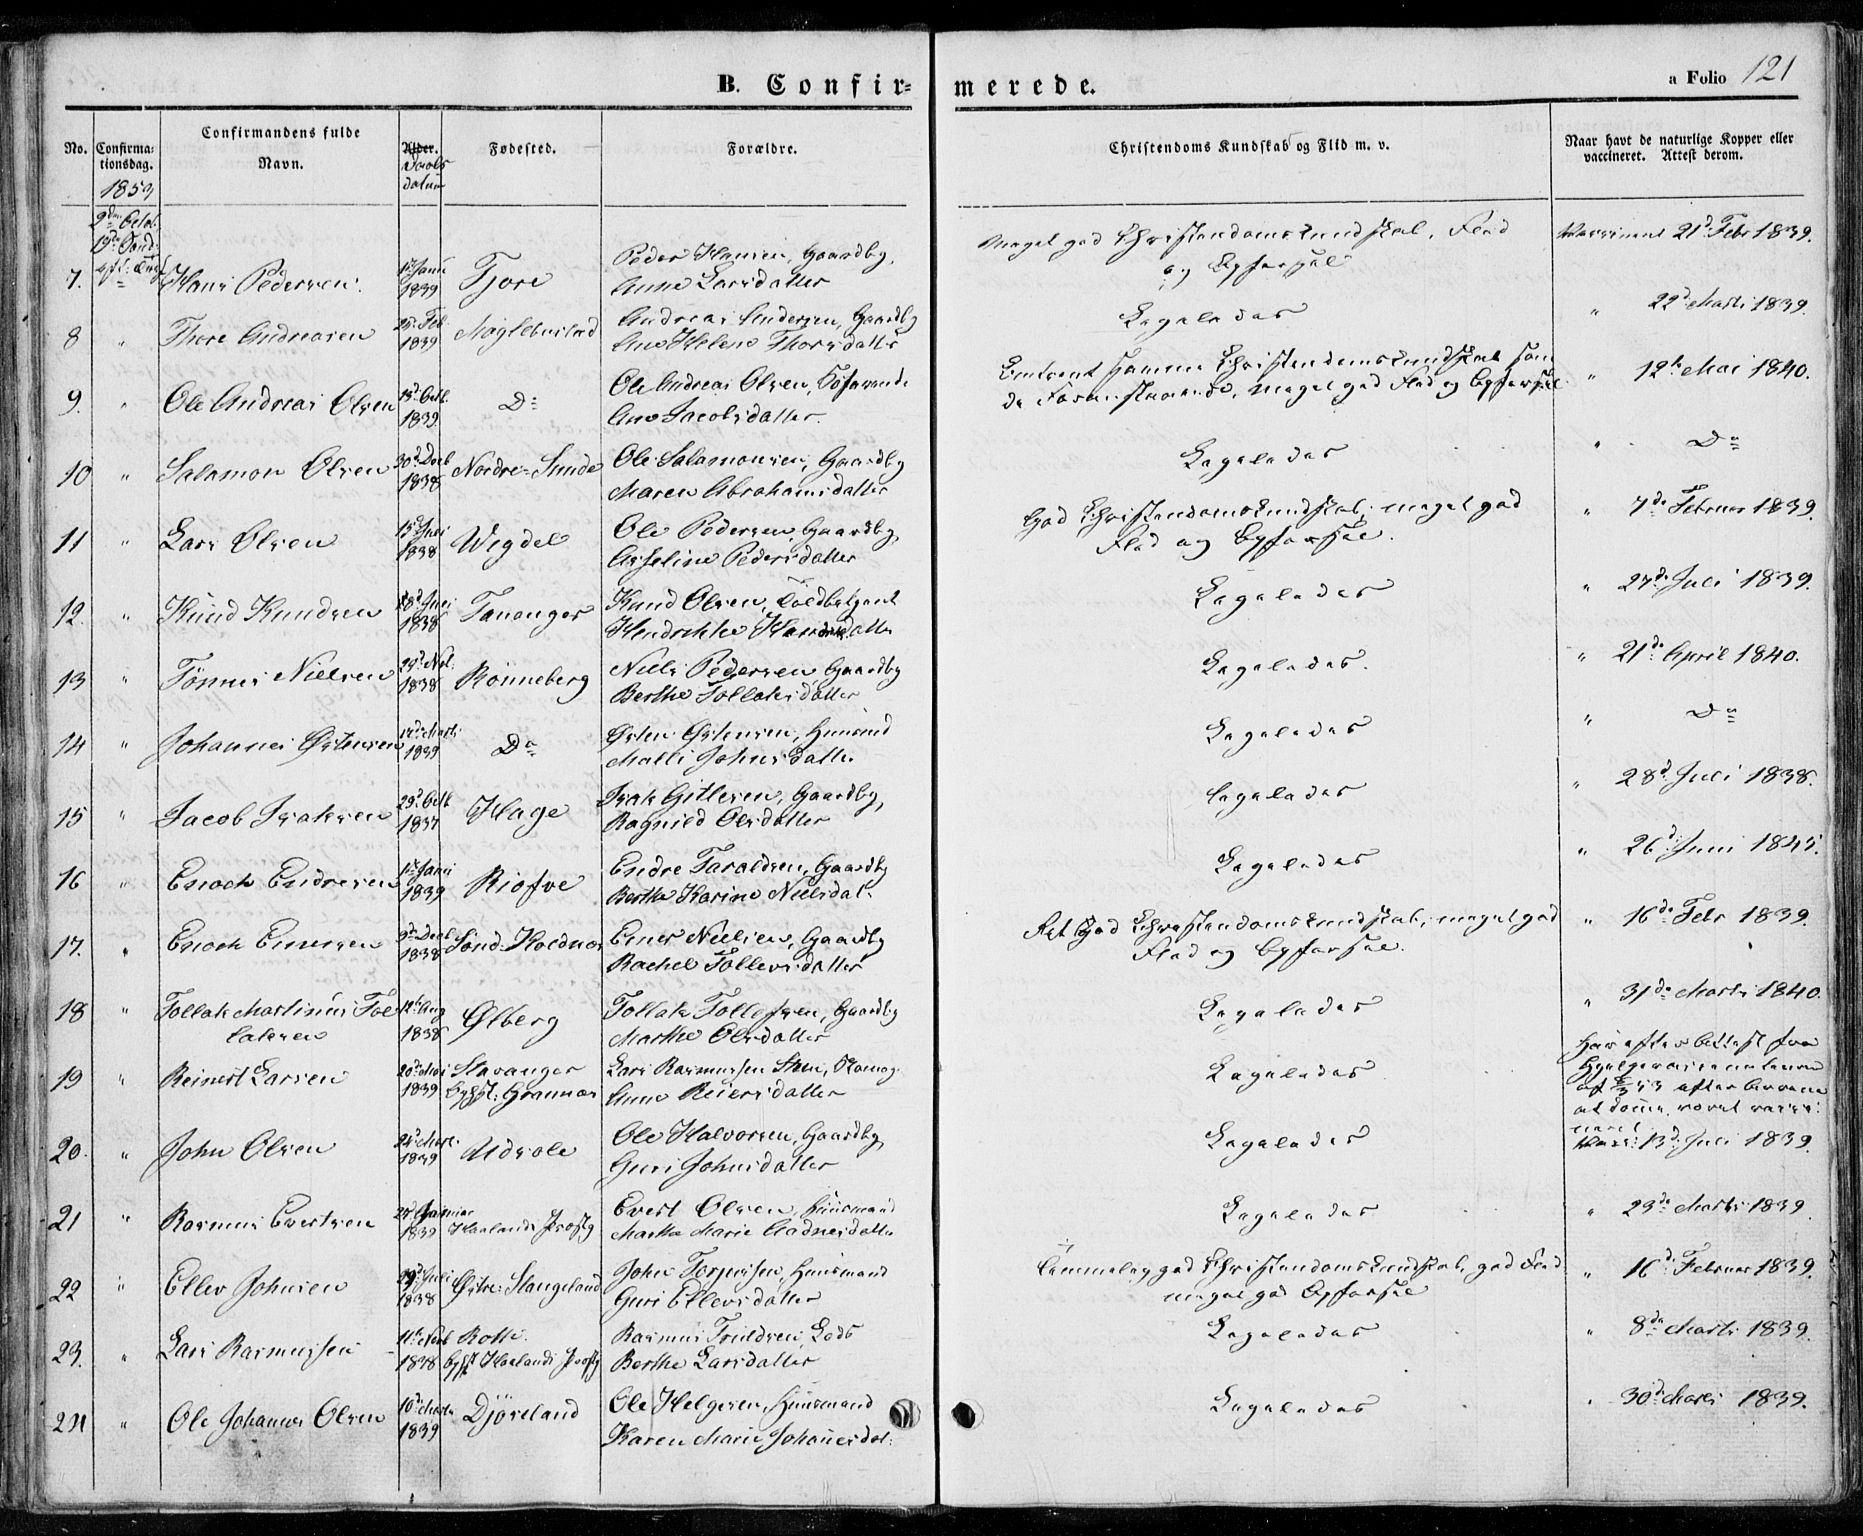 B. Confir=
merede.
a Folio 121
No.
Confirma=
tionsdag.
Confirmandens fulde
Navn.
Alder.
Daabs
datum
Fødested.
Forældre.
Christendoms Kundskab og Flid m. v.
Naar havt de naturlige Kopper eller
vaccineret. Attest derom.
1853
2den Octob.
19de Sønd:
Peder Hansen, Gaardbr,
Meget god Christendomskundskab, Flid
Vaccineret 21d Febr 1839.
7. Hans Pedersen. 1ste Janu 1839 Tjore Anne Larsdatter
og Opførsel
8 " Thore Andreasen 25 Feb 1839 Andreas Andersen, Gaardbr
Ane Helene Thorsdatter
Ligeledes
" 22d Marts 1839.
9. " Ole Andreas Olsen 13d Octb 1839. Do Ole Andreas Olsen, Søfarende
Ane Jacobsdatter.
Omtrent samme Christendomskundskab som
de Foranstaaende, meget god Flid og Opførsel
" 12te Mai 1840.
10 " Salamon Olsen 30d Decb 1838 Nordre=Sunde Ole Salamonsen, Gaardbr
Maren Abrahamsdatter
Ligeledes
" Do
11 " Lars Olsen 15d Juni 1838 Wigdel Ole Pedersen, Gaardbr,
Asseline Pedersdatter
God Christendomskundskab, meget god
Flid og Opførsel.
" 7de Februar 1839.
12. " Knud Knudsen 28d Juni 1838 Tananger Knud Olsen, Toldbetjent
Hendrikke datter
Ligeledes
" 27de Juli 1839.
13 " Tønnes Nielsen 29d Nov. 1838 Rönneberg Niels Pedersen, Gaardbr
Berthe Tollaksdatter
Ligeledes.
" 21de April 1840.
14 " Johannes Østensen 12de Marts 1839 Do Østen Østensen, Huusmd
Malli Johnsdatter
Ligeledes
" Do
15 " Jacob Isaksen 29d Octb 1837 Hage Isak Gitlesen, Gaardbr,
Ragnild Olsdatter
Ligeledes
" 28d Juli 1838.
16 " Enoch Endresen 1ste Janu 1839 Endre Taraldsen, Gaardbr
Berthe Karine Nielsdat.
Ligeledes
" 26d Juni 1845.
17. " Enoch Einersen 9de Decb 1838 Sönd: Koldnæs Einer Nielsen, Gaardbr
Rachel Tollevsdatter
Ret God Christendomskundskab, meget god
Flid og Opførsel.
" 16de Febr 1839.
18 " Tollak Martinus Tol=
laksen 12te Aug 1838 Ølberg Tollak Tollefsen, Gaardbr
Marthe Olsdatter
Ligeledes
" 31de Marts 1840.
19 " Reinert Larsen 20de Mai 1839 Stavanger
Lars Rasmussen
Anne Reiersdatter
Ligeledes
Har efter Attest fra
af 53 efter Arrene
at dømme været vacci=
neret
20. " John Olsen 24d Mart. 1839 Udsole Ole Halvorsen, Gaardbr,
Guri Johnsdatter
Ligeledes
Vacc: 13d Juli 1839.
21 " Rasmus Evertsen 24d Januar 1839 Haalands Prestg Evert Olsen, Huusmand
Martha Marie Aadnesdatter
Ligeledes
" 23de Marts 1839
22 " Ellev Johnsen 29d Juli 1838 Østre: Stangeland John Torjussen, Huusmand
Guri Ellevsdatter
Temmelig god Christendomskundskab, god Flid
meget god Opførsel
" 16d Februar 1839.
23. " Lars Rasmussen 11te Novb 1838 Rott.
Haalands Prestg Rasmus Truldsen, Lods
Berthe Larsdatter
Ligeledes
" 8de Marts 1839.
24 " Ole Johannes Olsen 10de Marts 1839 Djöseland Ole Helgesen, Huusmand
Karen Marie Johannesdat.
Ligeledes
" 30de Marts 1839.